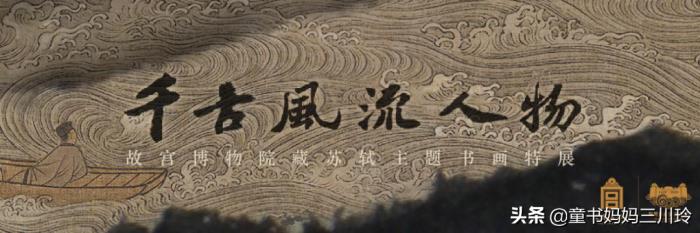 千古風流人物
故宫博物院藏苏轼主题书画特展
头条 @童书妈妈三川玲